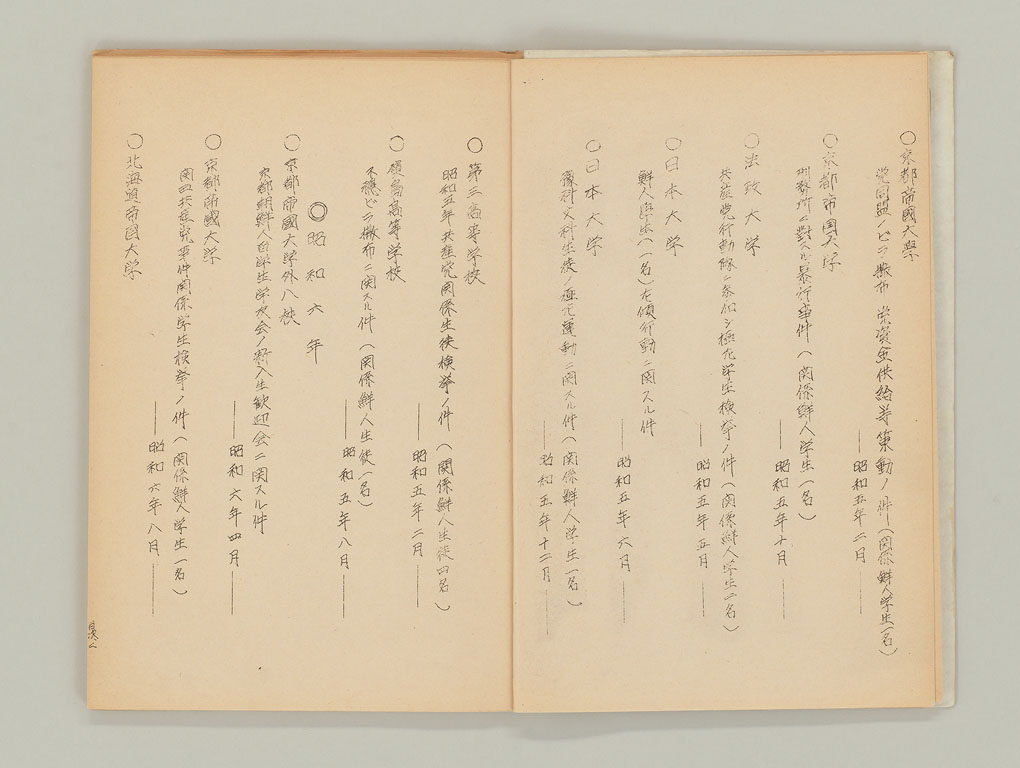 ○京都帝國大学
党同盟ノビラ撒布 党資金供給等策動ノ件(関係鮮人学生一名)
――昭和五年二月――
○京都帝国大学
刑務所ニ対スル暴行事件(関係鮮人学生一名)
――昭和五年十月――
○法政大学
共産党行動隊ニ参加シ極左学生検挙ノ件(関係鮮人学生二名)
――昭和五年五月――
○日本大学
鮮人学生(一名)左傾行動ニ関スル件
――昭和五年六月――
○日本大学
豫科文科生徒ノ極左運動ニ関スル件(関係鮮人学生一名)
――昭和五年十二月――
○第三高等学校
昭和五年共産党関係生徒検挙ノ件(関係鮮人生徒四名)
――昭和五年二月――
○廣島高等学校
不穏ビラ撒布ニ関スル件(関係鮮人生徒一名)
――昭和五年八月――
◎昭和六年
○京都帝國大学外八校
京都朝鮮人留学生学友会ノ新入生歓迎会ニ関スル件
――昭和六年四月――
○京都帝國大学
関西共産党事件関係学生検挙ノ件(関係鮮人学生一名)
――昭和六年八月――
○北海道帝国大学